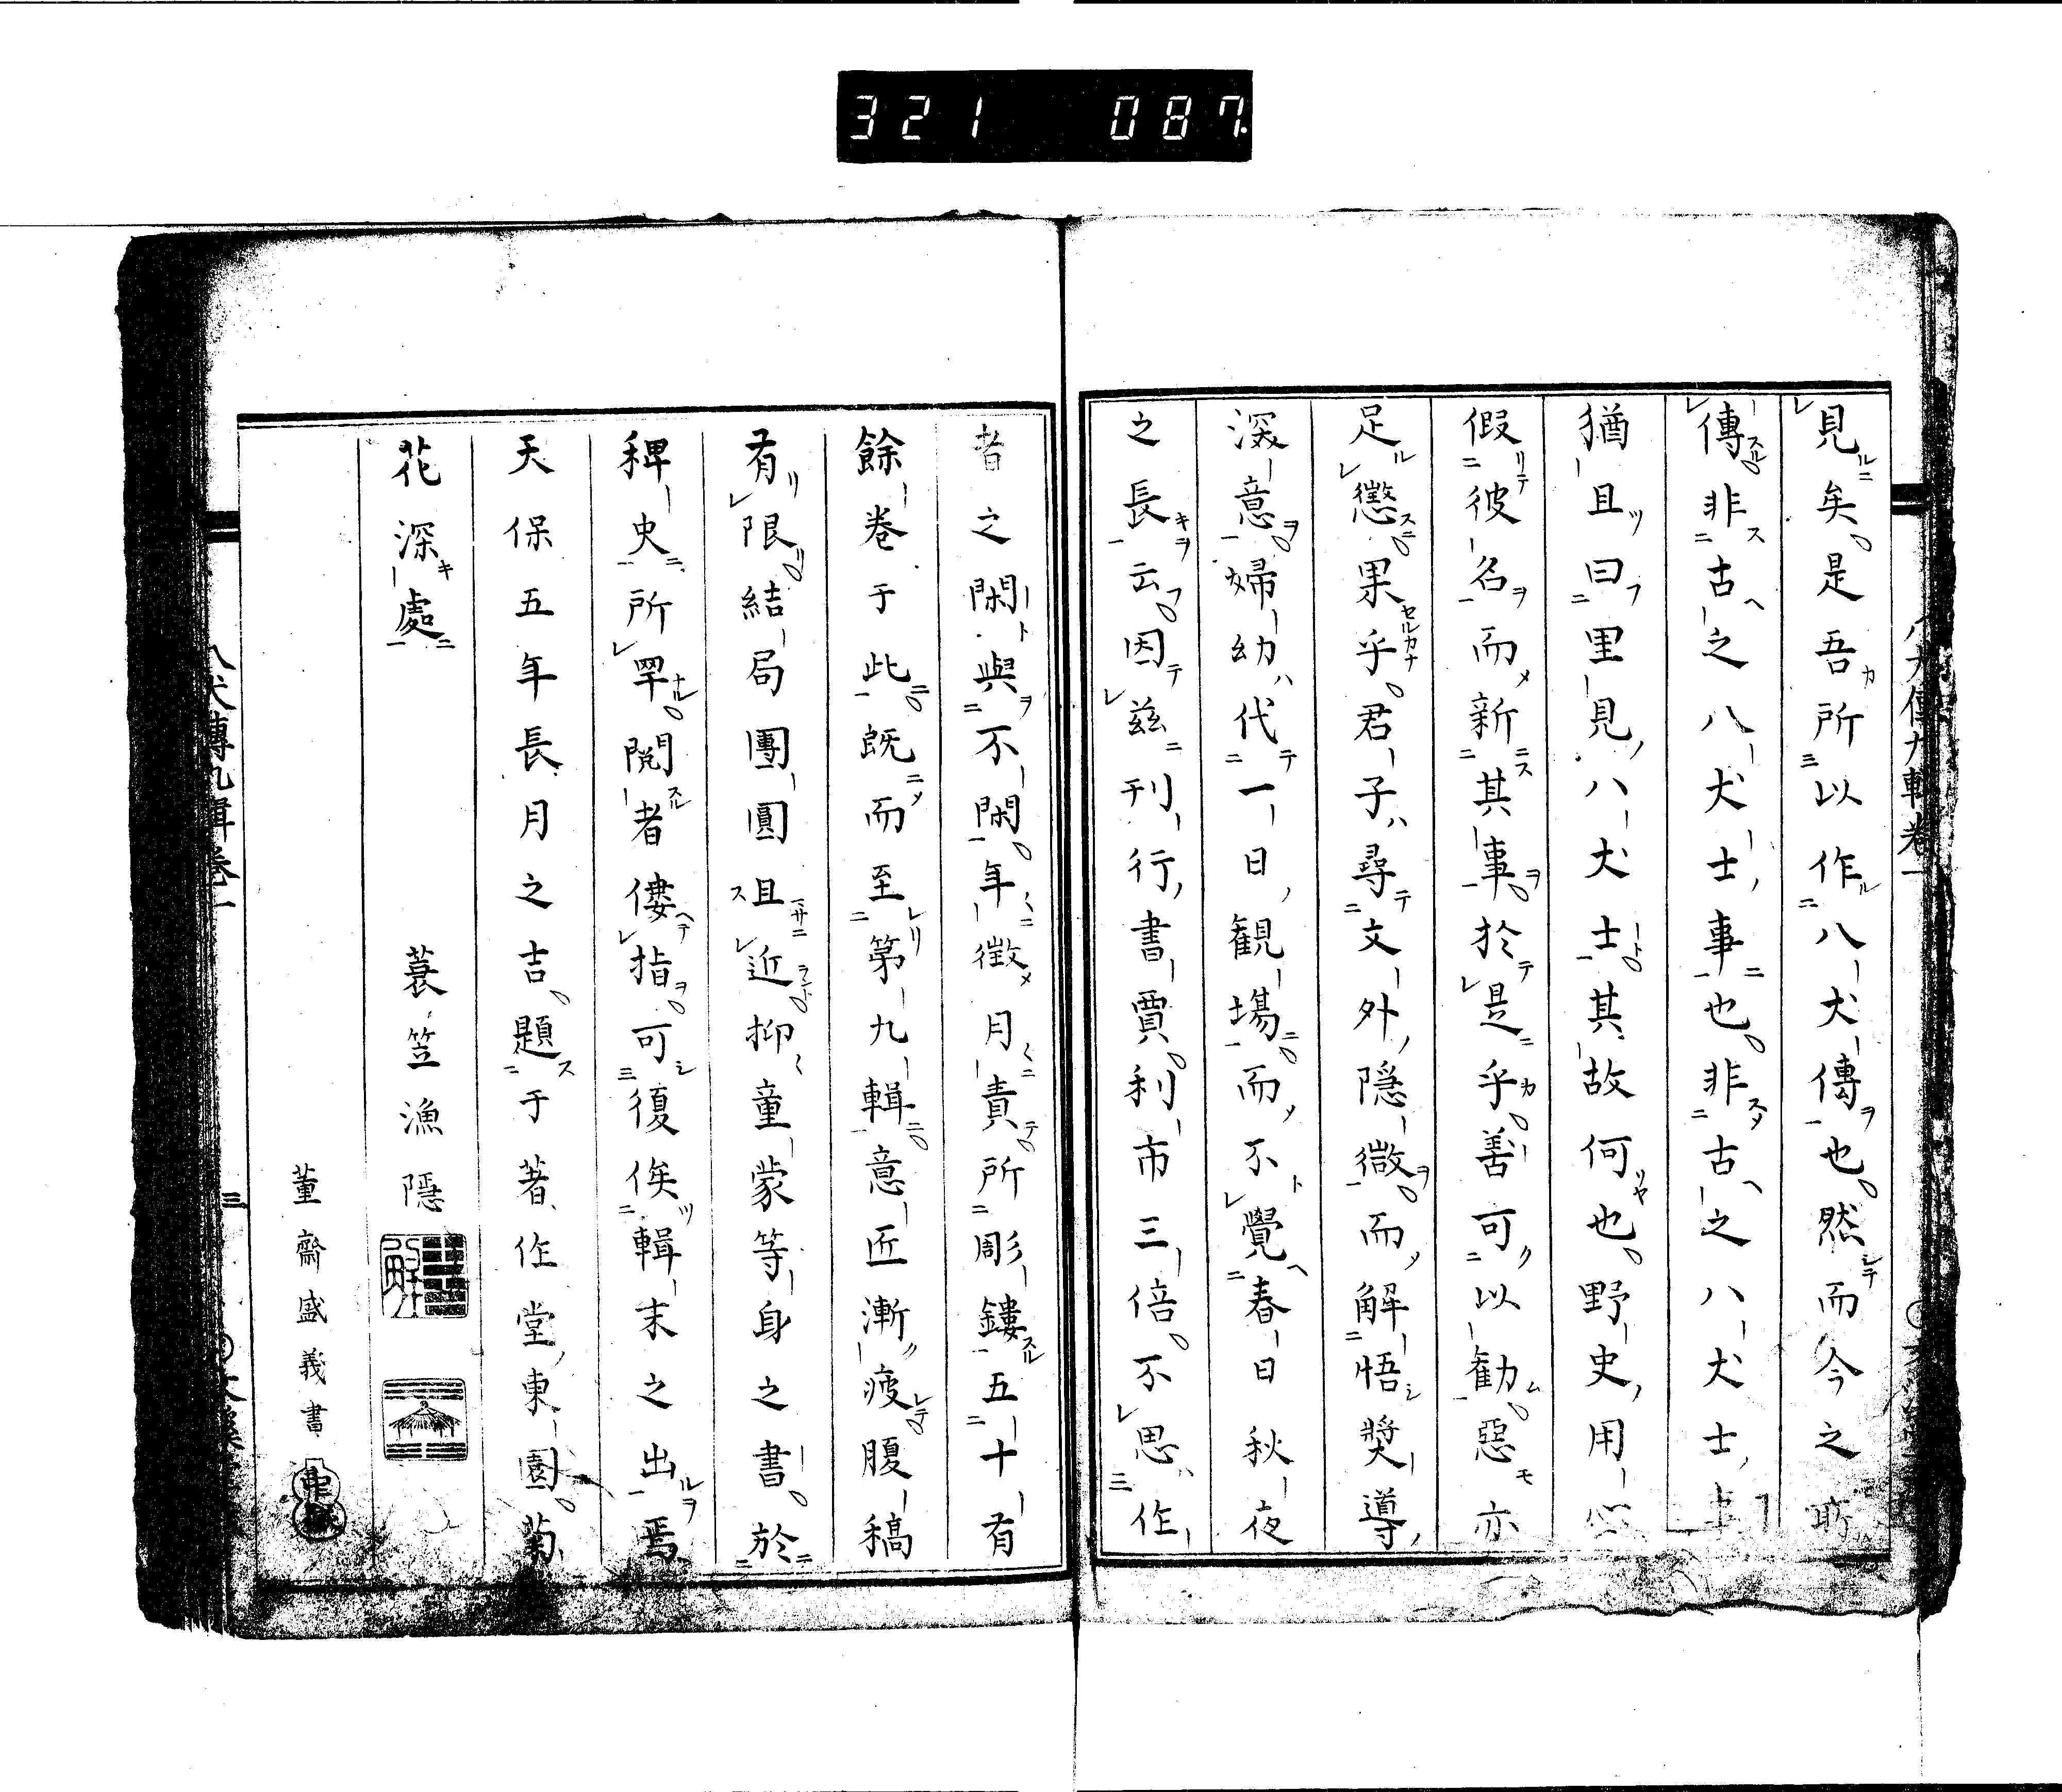 321 087
見矣是吾所以作八犬傳也然而今之所
傳非古之八犬士事也非古之八犬士事
猶且曰里見八犬士其故何也野史用心
假彼名而新其事於是乎善可以勸惡亦
足懲果乎君子尋文外隱微而解悟奬導
深意婦幼代一日觀場而不覺春日秋夜
之長云因茲刊行書賈利市三倍不思作
者之閑與不閑年徵月責所彫鏤五十有
餘卷于此既而至第九輯意匠漸疲腹稿
有限結局團圓且近抑童蒙等身之書於
稗史所罕閲者僂指可復俟輯末之出焉
天保五年長月之吉題于著作堂東園菊
花深處
蓑笠漁隱
董齋盛義書
八犬傳九輯卷一
三